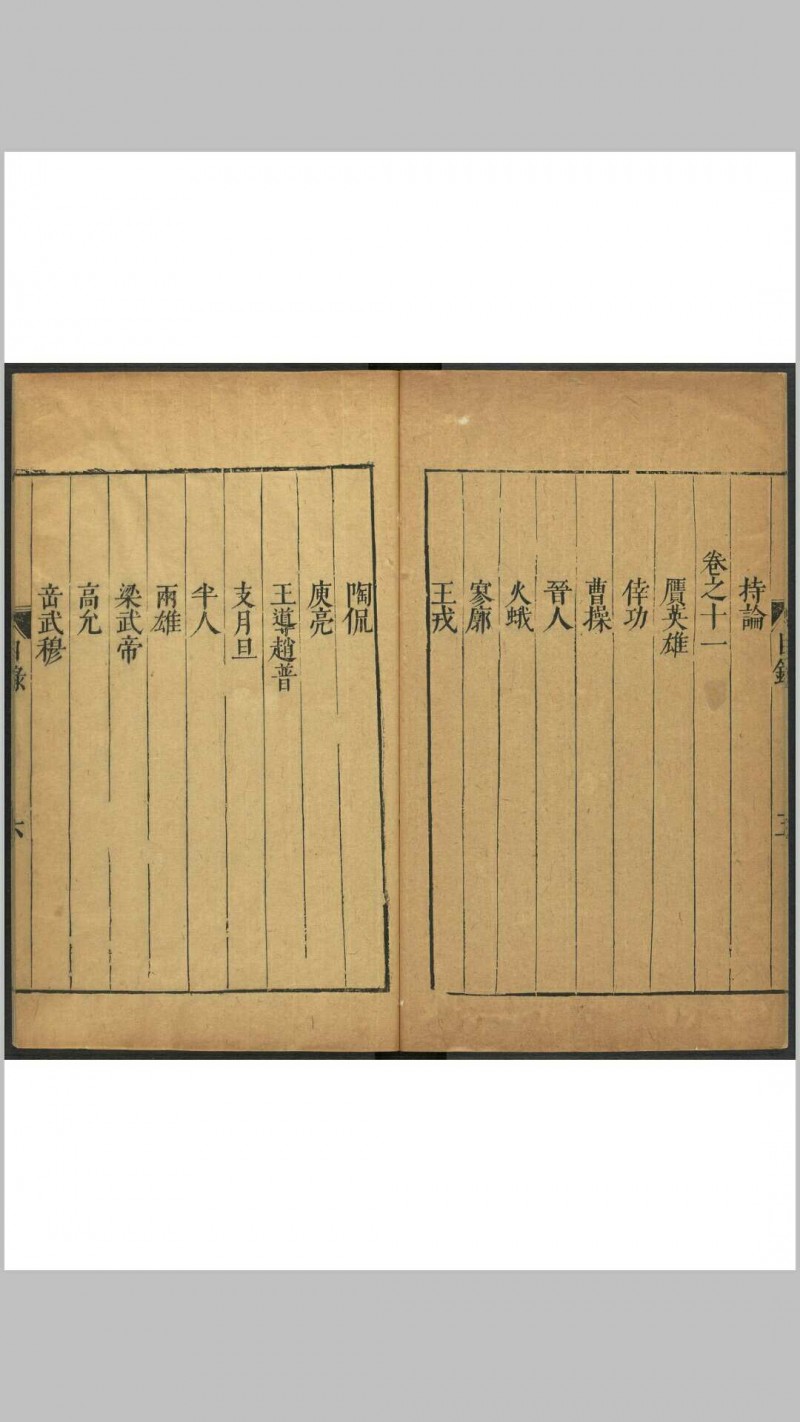 目錄
五
持論
卷之十一
贋英雄
倖功
曹操
晉人
火蛾
寥廓
王戎
陶侃
庾亮
王導趙普
支月旦
半人
兩雄
梁武帝
高允
岳武穆
目錄
六